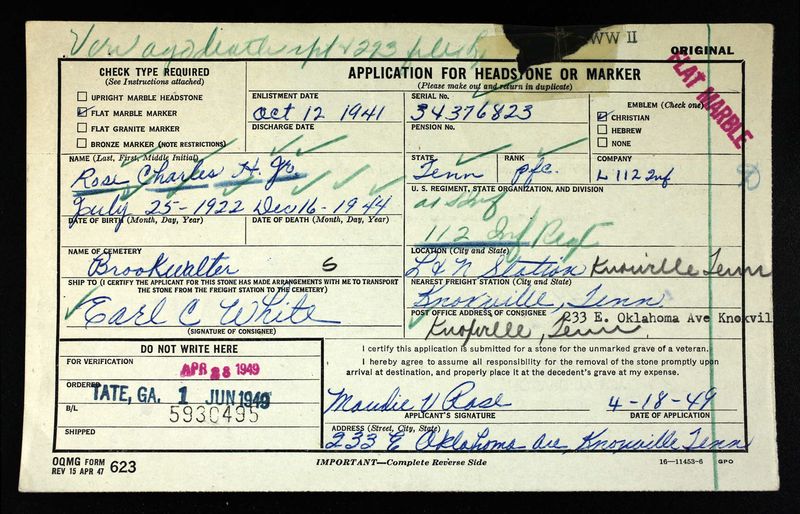 WW II
ORIGINAL
FLAT MARBLE
CHECK TYPE REQUIRED
(See Instructions attached)
UPRIGHT MARBLE HEADSTONE
FLAT MARBLE MARKER
FLAT GRANITE MARKER
BRONZE MARKER (NOTE RESTRICTIONS)
APPLICATION FOR HEADSTONE OR MARKER
(Please make out and return in duplicate)
ENLISTMENT DATE
Oct 12 1941
DISCHARGE DATE
SERIAL No.
34376823
PENSION No.
EMBLEM (Check one)
CHRISTIAN
HEBREW
NONE
NAME (Last, First, Middle Initial)
Rose Charles H. Jr.
STATE
Tenn
RANK
pfc.
COMPANY
L 112 Inf
July 25-1922
DATE OF BIRTH (Month, Day, Year)
Dec 16-1944
DATE OF DEATH (Month, Day, Year)
U. S. REGIMENT, STATE ORGANIZATION, AND DIVISION
112 Inf Regt
NAME OF CEMETERY
Brookwalter
S
LOCATION (City and State)
L & N Station Knoxville Tenn
SHIP TO (I CERTIFY THE APPLICANT FOR THIS STONE HAS MADE ARRANGEMENTS WITH ME TO TRANSPORT
THE STONE FROM THE FREIGHT STATION TO THE CEMETERY)
Earl C White
(SIGNATURE OF CONSIGNEE)
NEAREST FREIGHT STATION (City and State)
Knoxville, Tenn
POST OFFICE ADDRESS OF CONSIGNEE
233 E. Oklahoma Ave Knoxvil
Knoxville, Tenn.
DO NOT WRITE HERE
FOR VERIFICATION
APR 28 1949
ORDERED
TATE, GA. 1 JUN 1949
B/L
5930495
SHIPPED
I certify this application is submitted for a stone for the unmarked grave of a veteran.
I hereby agree to assume all responsibility for the removal of the stone promptly upon
arrival at destination, and properly place it at the decedent's grave at my expense.
Maudie H Rose
APPLICANT'S SIGNATURE
4-18-49
DATE OF APPLICATION
ADDRESS (Street, City, State)
233 E Oklahoma Ave, Knoxville Tenn
OQMG FORM
REV 15 APR 47
623
IMPORTANT—Complete Reverse Side
16—11453-6 GPO